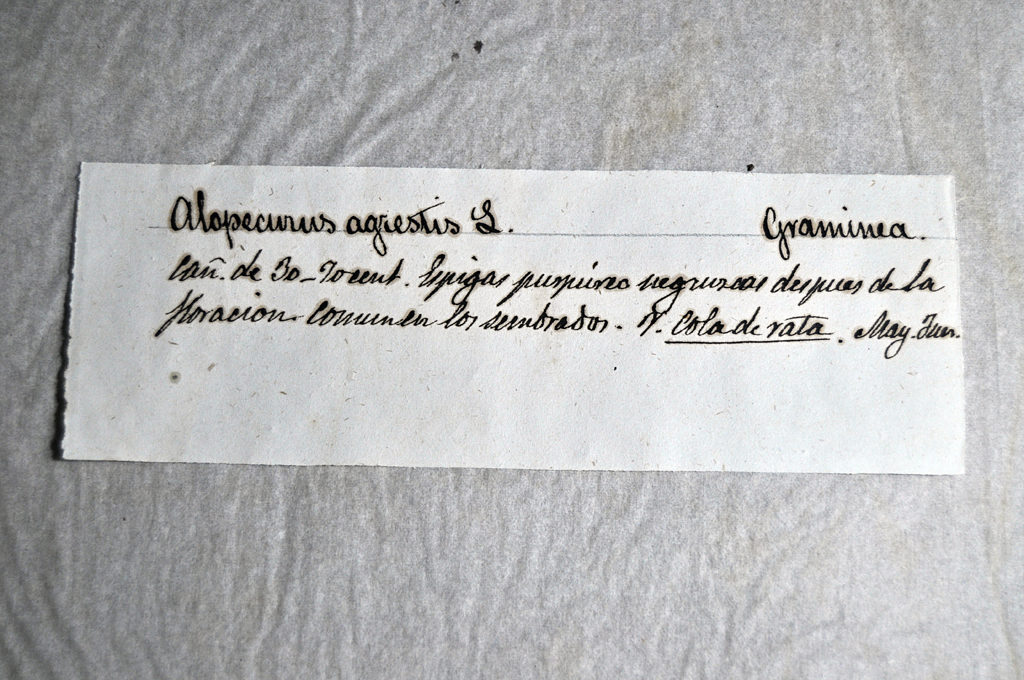 Alopecurus agrestis L. Graminea.
Cañ. de 30-70 cent. Espigas purpúreo negruzcas despues de la
floracion. Comun en los sembrados. V. Cola de rata. May. Jun.